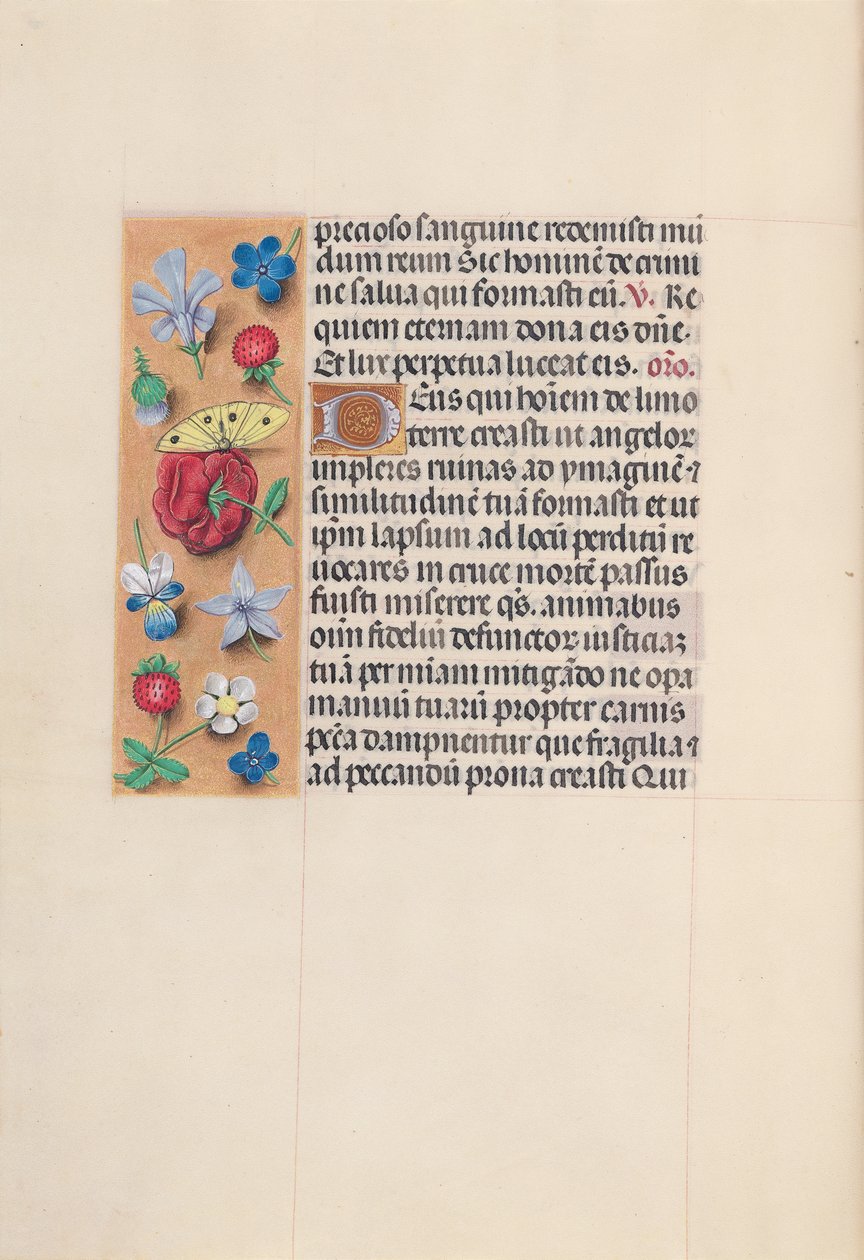 precioso sanguine redemisti mū
dum reum Sic hominē de crimi
ne salua qui formasti eū. V. Re
quiem eternam dona eis dn̄e.
Et lux perpetua luceat eis. or̄o.
Deus qui ho̅iem de limo
terre creasti ut angelor
impleres ruinas ad ymaginē ⁊
similitudinē tuā formasti et ut
ip̄m lapsum ad locū perditū re
uocares in cruce mortē passus
fuisti miserere qs̄. animabus
oīm fideliū defunctor iusticiaꝫ
tuā per miāam mitigādo ne opa
manuū tuarū propter carnis
pcc̄a dampnentur que fragilia ⁊
ad peccandū prona creasti Qui